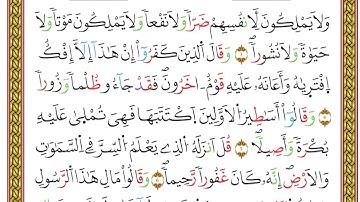 وَلَا يَمْلِكُونَ لِأَنْفُسِهِمْ ضَرّاً وَلَا نَفْعاً وَلَا يَمْلِكُونَ مَوْتاً وَلَا
حَيٰوةً وَلَا نُشُوراً ۝ وَقَالَ الَّذ۪ينَ كَفَرُٓوا اِنْ هٰذَٓا اِلَّٓا اِفْكٌۨ
افْتَرٰيهُ وَاَعَانَهُ عَلَيْهِ قَوْمٌ اٰخَرُونَۚ فَقَدْ جَٓاؤُ۫ ظُلْماً وَزُوراًۚ
۝ وَقَالُٓوا اَسَاط۪يرُ الْاَوَّل۪ينَ اكْتَتَبَهَا فَهِيَ تُمْلٰى عَلَيْهِ
بُكْرَةً وَاَص۪يلاً ۝ قُلْ اَنْزَلَهُ الَّذ۪ي يَعْلَمُ السِّرَّ فِي السَّمٰوَاتِ
وَالْاَرْضِۜ اِنَّهُ كَانَ غَفُوراً رَح۪يماً ۝ وَقَالُوا مَالِ هٰذَا الرَّسُولِ